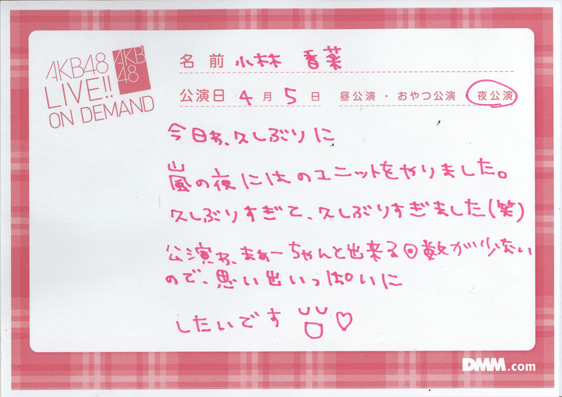 AKB48
LIVE!!
ON DEMAND
AKB
48
名前 小林 香菜
公演日 4月5日 昼公演・おやつ公演 夜公演
今日ゎ、久しぶりに
嵐の夜にはのユニットをやりました。
久しぶりすぎて、久しぶりすぎました(笑)
公演ゎ、まぁーちゃんと出来る回数が少ない
ので、思い出いっぱいに
したいです
DMM.com